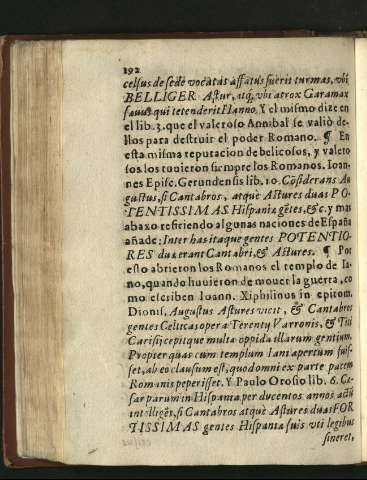 192
celsus de sede vocatas affatus fuerit turmas, vbi
BELLIGER Astur, atq; vbi atrox Garamax
sauus qui tetenderit Hanno. Y el mismo dize en
el lib. 3. que el valeroso Annibal se valiò de-
llos para destruir el poder Romano. ¶ En
esta misma reputacion de belicosos, y valero
sos los tuuieron siempre los Romanos. Ioan-
nes Episc. Gerundensis lib. 10. Cōsiderans Au
gustus, si Cantabros, atquè Astures duas PO-
TENTISSIMAS Hispaniæ gētes, &c. y mas
abaxo refiriendo algunas naciones de España
añade: Inter has itaque gentes POTENTIO-
RES duæ erant Cantabri, & Astures. ¶ Por
esto abrieron los Romanos el templo de Ia-
no, quando huuieron de mouer la guerra, co
mo escriben Ioann. Xiphilinus in epitom.
Dionis, Augustus Astures vicit, & Cantabros
gentes Celticas opera Terenty Varronis, & Titi
Carisij cepitque multa oppida illarum gentium.
Propter quas cum templum Iani apertum fuis-
set, ab eo clausum est, quod omni ex parte pacem
Romanis peperisset. Y Paulo Orosio lib. 6. Cæ-
sar parum in Hispania per ducentos annos actū
intelligēs, si Cantabros atquè Astures duas FOR
TISSIMAS gentes Hispania suis vti legibus
sineret,